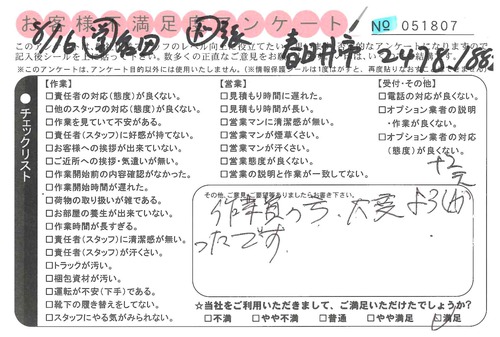 お客様満足度アンケート
№ 051807
3/16
春日井市
記入後シールを
※このアンケートは、アンケート目的以外には使用いたしません。
チェックリスト
【作業】
□責任者の対応(態度)が良くない。
□他のスタッフの対応(態度)が良くない。
□作業を見ていて不安がある。
□責任者(スタッフ)に好感が持てない。
□お客様への挨拶が出来ていない。
□ご近所への挨拶・気遣いが無い。
□作業開始前の内容確認がなかった。
□作業開始時間が遅れた。
□荷物の取り扱いが雑である。
□お部屋の養生が出来ていない。
□作業時間が長すぎる。
□責任者(スタッフ)に清潔感が無い。
□責任者(スタッフ)が汗くさい。
□トラックが汚い。
□梱包資材が汚い。
□運転が不安(下手)である。
□靴下の履き替えをしてない。
□スタッフにやる気がみられない。
【営業】
□見積もり時間に遅れた。
□見積もり時間が長い。
□営業マンに清潔感が無い。
□営業マンが煙草くさい。
□営業マンが汗くさい。
□営業態度が良くない。
□営業の説明と作業が一致してない。
【受付・その他】
□電話の対応が良くない。
□オプション業者の説明
・作業が良くない。
□オプション業者の対応
(態度)が良くない。
その他、ご意見・ご要望等ありましたらお書き下さい。
作業員の方、大変よろしか
ったです
☆当社をご利用いただきまして、ご満足いただけたでしょうか?
□不満 □やや不満 □普通 □やや満足 □満足